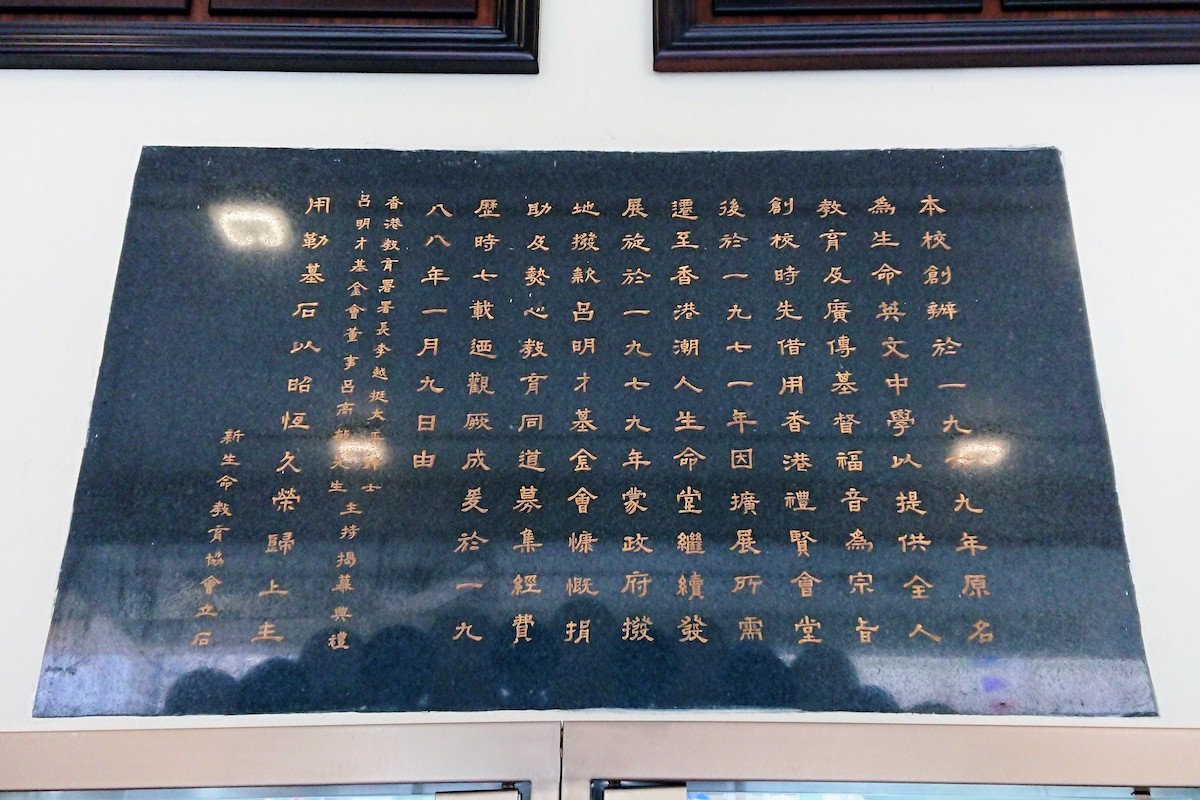 本校創辦於一九九年原名
為生命英文中學以提供全人
教育及廣傳基督福音為宗旨
創校時先借用香港禮賢會堂
後於一九七一年因擴展所需
遷至香港潮人生命堂繼續發
展旋於一九七九年蒙政府撥
地撥款呂明才基金會慷慨捐
助及熱心教育同道募集經費
歷時七載迺觀厥成爰於一九
八八年一月九日由
香港教育署署長李越挺太平紳士
呂明才基金會董事呂高先生
主持揭幕典禮
用勒基石以昭恆久榮歸上主
新生命教育協會立石